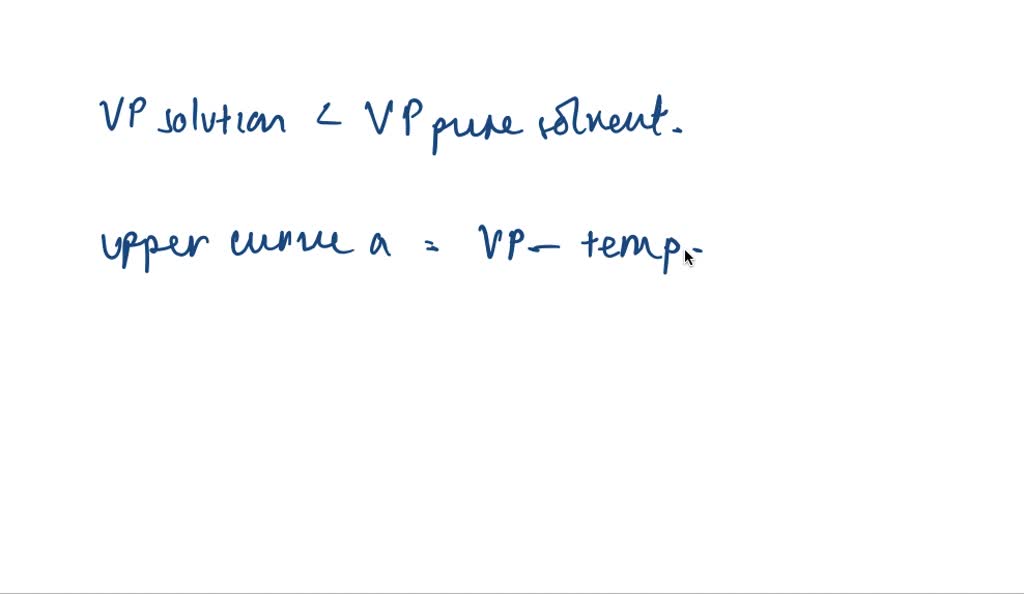 VP solution < VP pure solvent.
upper curve a = VP - temp -